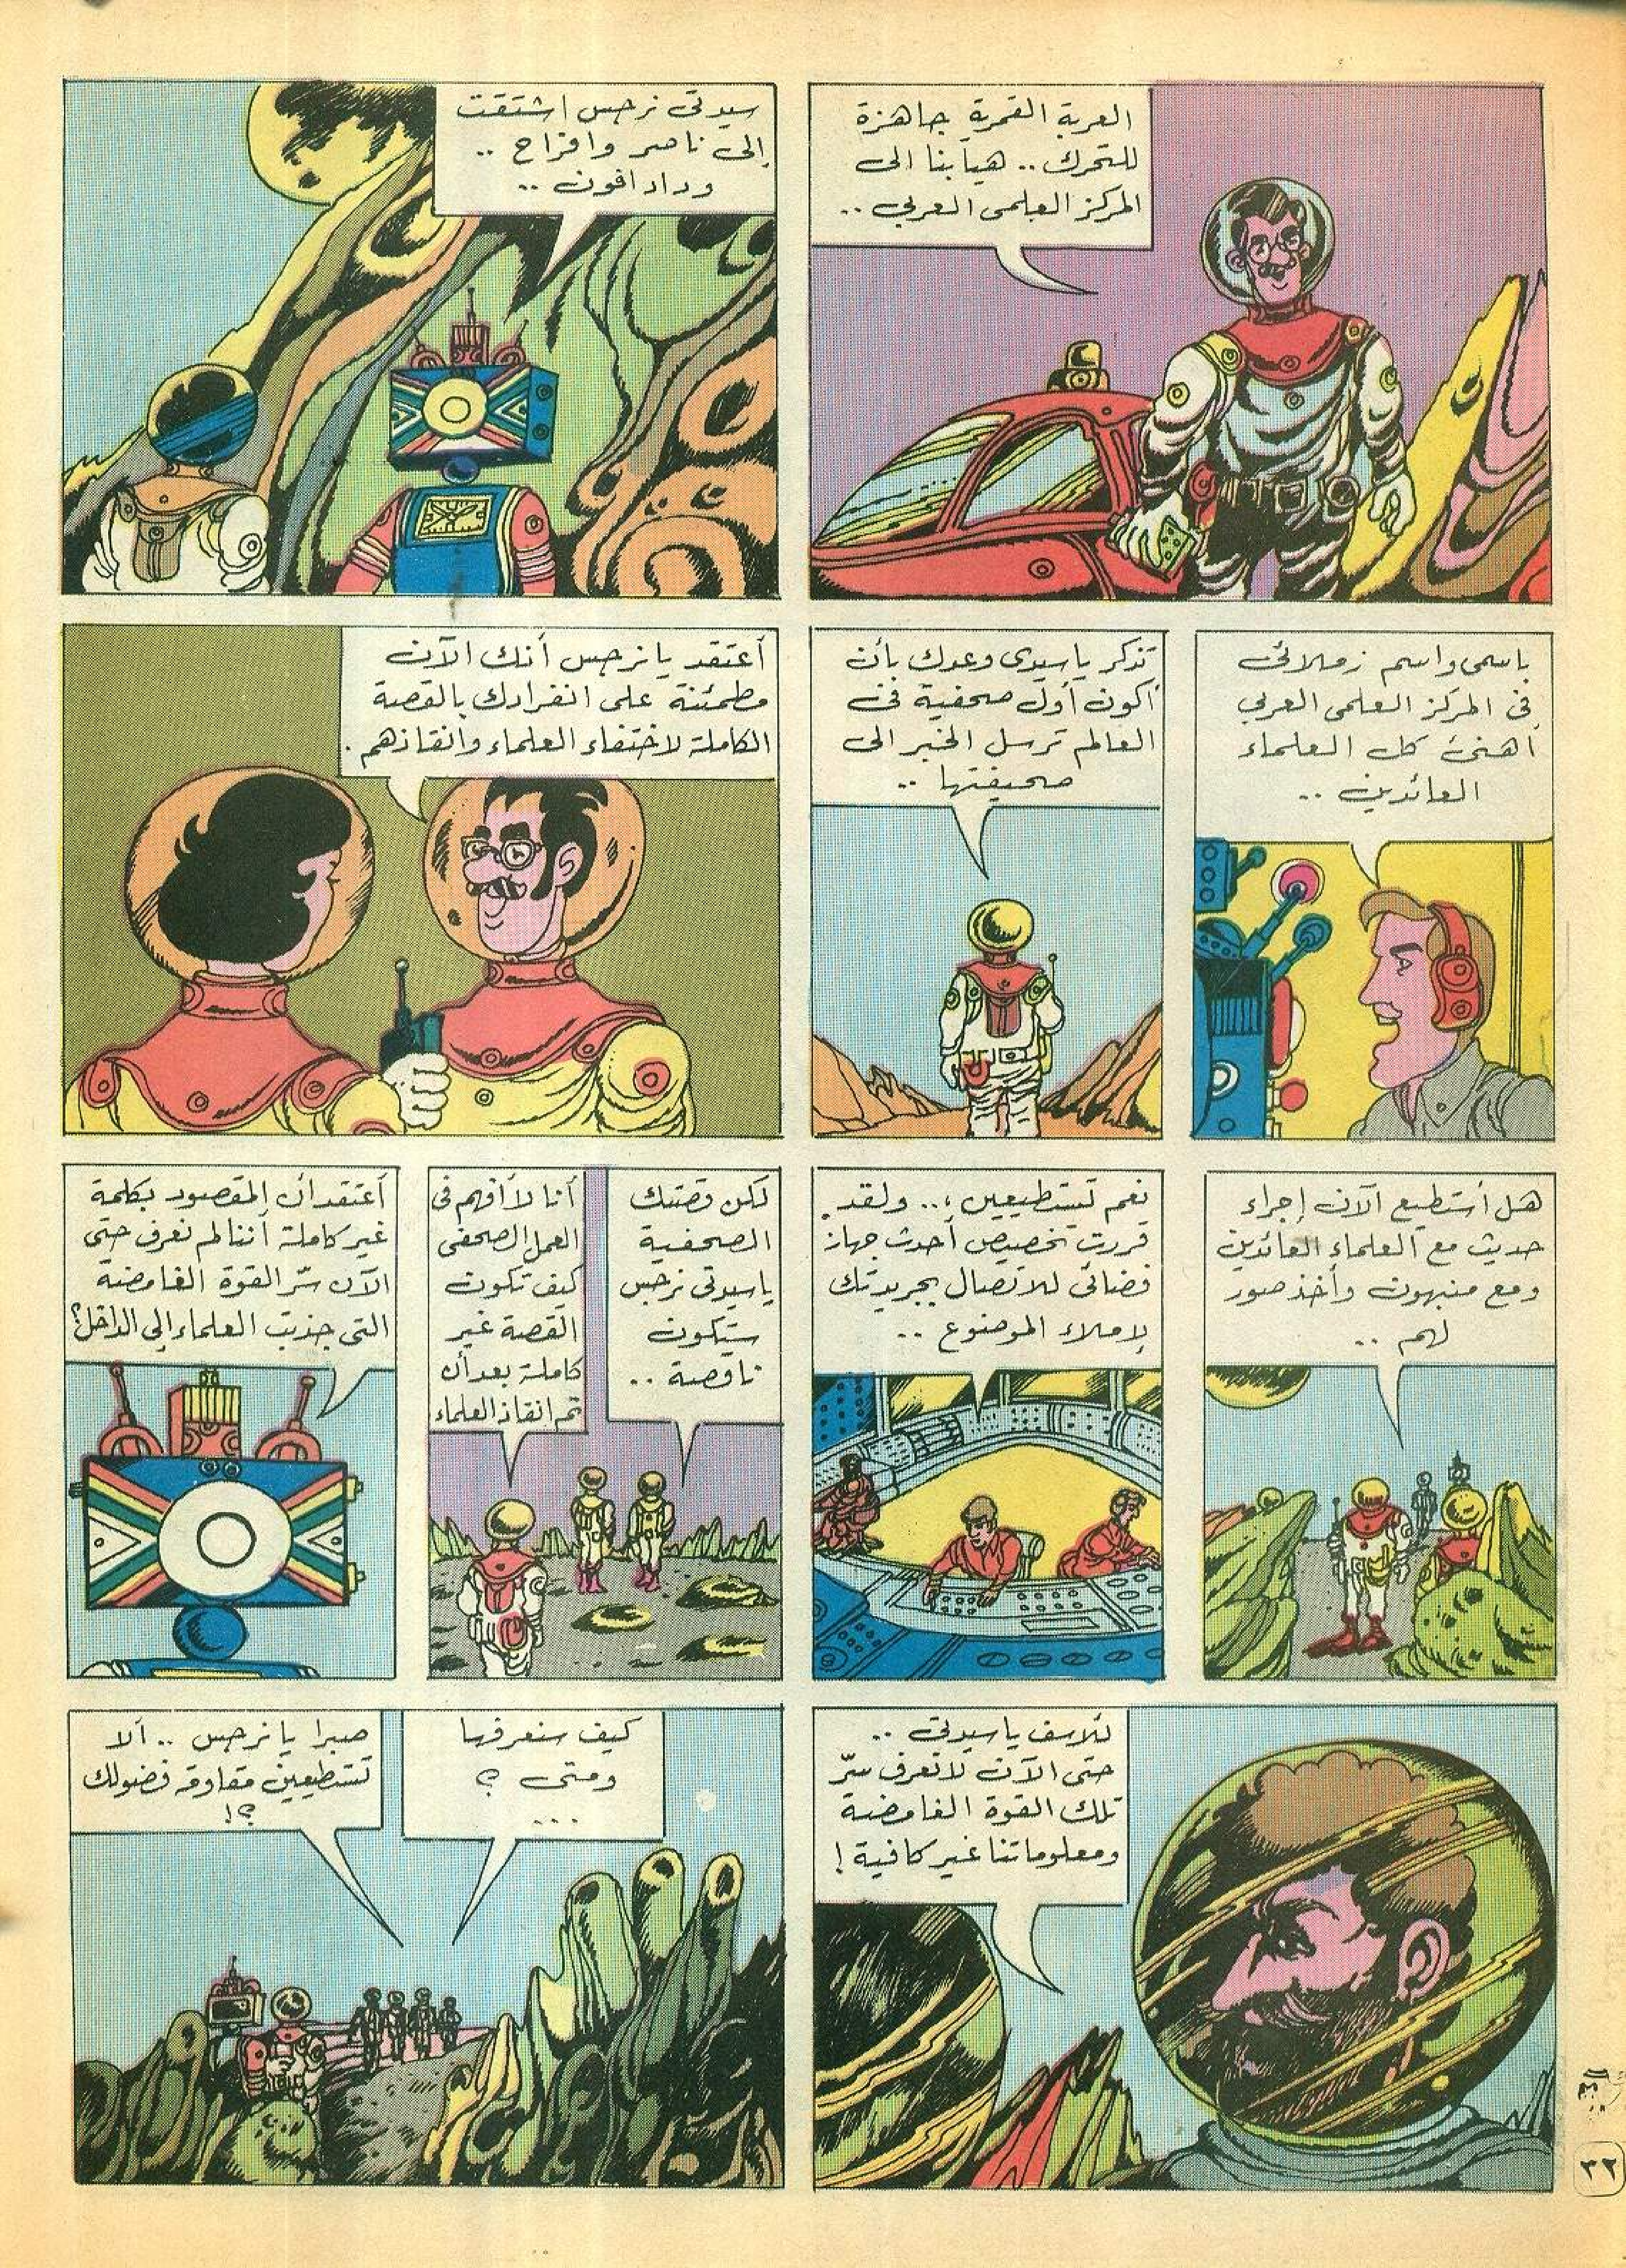 العربة القمرية جاهزة
للتحرك .. هيا بنا الى
المركز العلمى العربي ..
سيدتى نرجس اشتقت
إلى ناصر وافراح ..
وداد افون ..
باسمى واسم زملائى
فى المركز العلمى العربي
أهنئ كل العلماء
العائدين ..
تذكر ياسيدى وعدك بأن
أكون أول صحفية فى
العالم ترسل الخبر الى
صحيفتها ..
أعتقد يا نرجس أنك الآن
مطمئنة على انفرادك بالقصة
الكاملة لاختفاء العلماء وانقاذهم .
هل أستطيع الآن إجراء
حديث مع العلماء العائدين
ومع منبهون وأخذ صور
لهم ..
نعم تستطيعين .. ولقد
قررت تخصيص أحدث جهاز
فضائى للاتصال بجريدتك
لإملاء الموضوع ..
لكن قصتك
الصحفية
ياسيدتى نرجس
ستكون
ناقصة ..
أنا لا أفهم فى
العمل الصحفى
كيف تكون
القصة غير
كاملة بعد أن
تم انقاذ العلماء
أعتقد أن المقصود بكلمة
غير كاملة أننا لم نعرف حتى
الآن سّر القوة الغامضة
التى جذبت العلماء إلى الداخل؟
للاسف ياسيدتى ..
حتى الآن لا نعرف سّر
تلك القوة الغامضة
ومعلوماتنا غير كافية !
كيف سنعرفها
ومتى ؟
...
صبرا يا نرجس .. ألا
تستطيعين مقاومة فضولك
؟!
٣٢